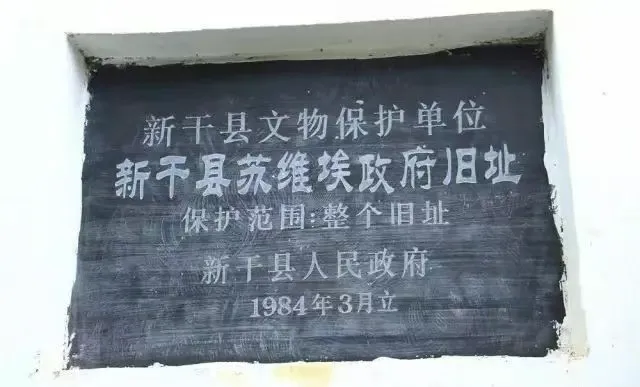 新干县文物保护单位
新干县苏维埃政府旧址
保护范围:整个旧址
新干县人民政府
1984年3月立